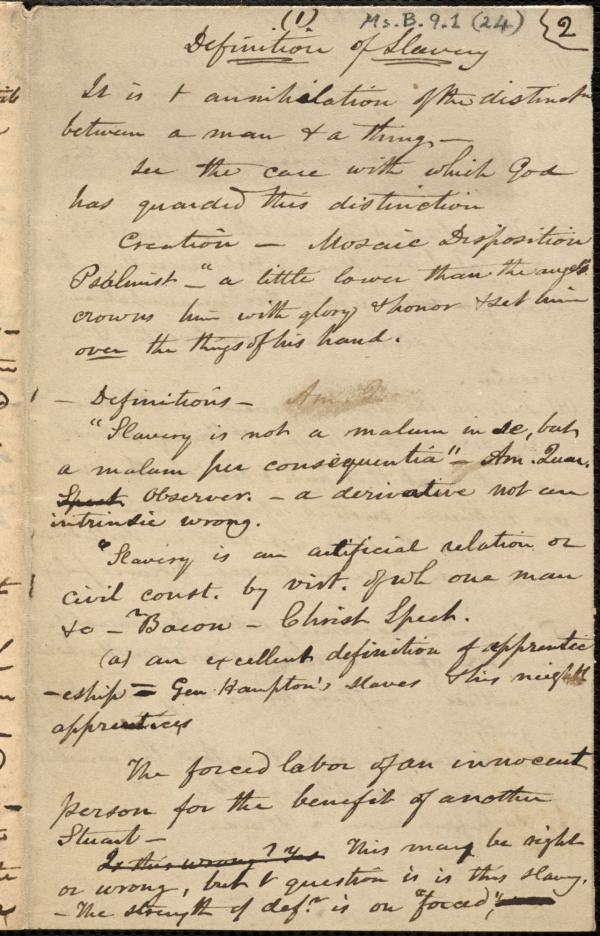 (1) Ms. B. 9.1 (24) 2
Definition of Slavery
It is + annihilation of the distinctn
between a man & a thing, —
see the care with which God
has guarded this distinction
Creation — Mosaic Disposition
Psalmist — "a little lower than the angels
crowns him with glory & honor & set him
over the things of his hand.
— Definitions — Am. Q
"Slavery is not a malum in se, but
a malum per consequentia" — Am. Quar.
Spect Observer. — a derivative not an
intrinsic wrong.
"Slavery is an artificial relation or
civil const. by virt. of wh one man
&c — " Bacon — Christ Spect.
(a) an excellent definition of apprentic
-eship — Gen Hampton's slaves & his neighb
apprentices
The forced labor of an innocent
person for the benefit of another
Stuart —
Is this wrong? Yes This may be right
or wrong, but + question is is this slavery.
— The strength of def.n is on "forced",